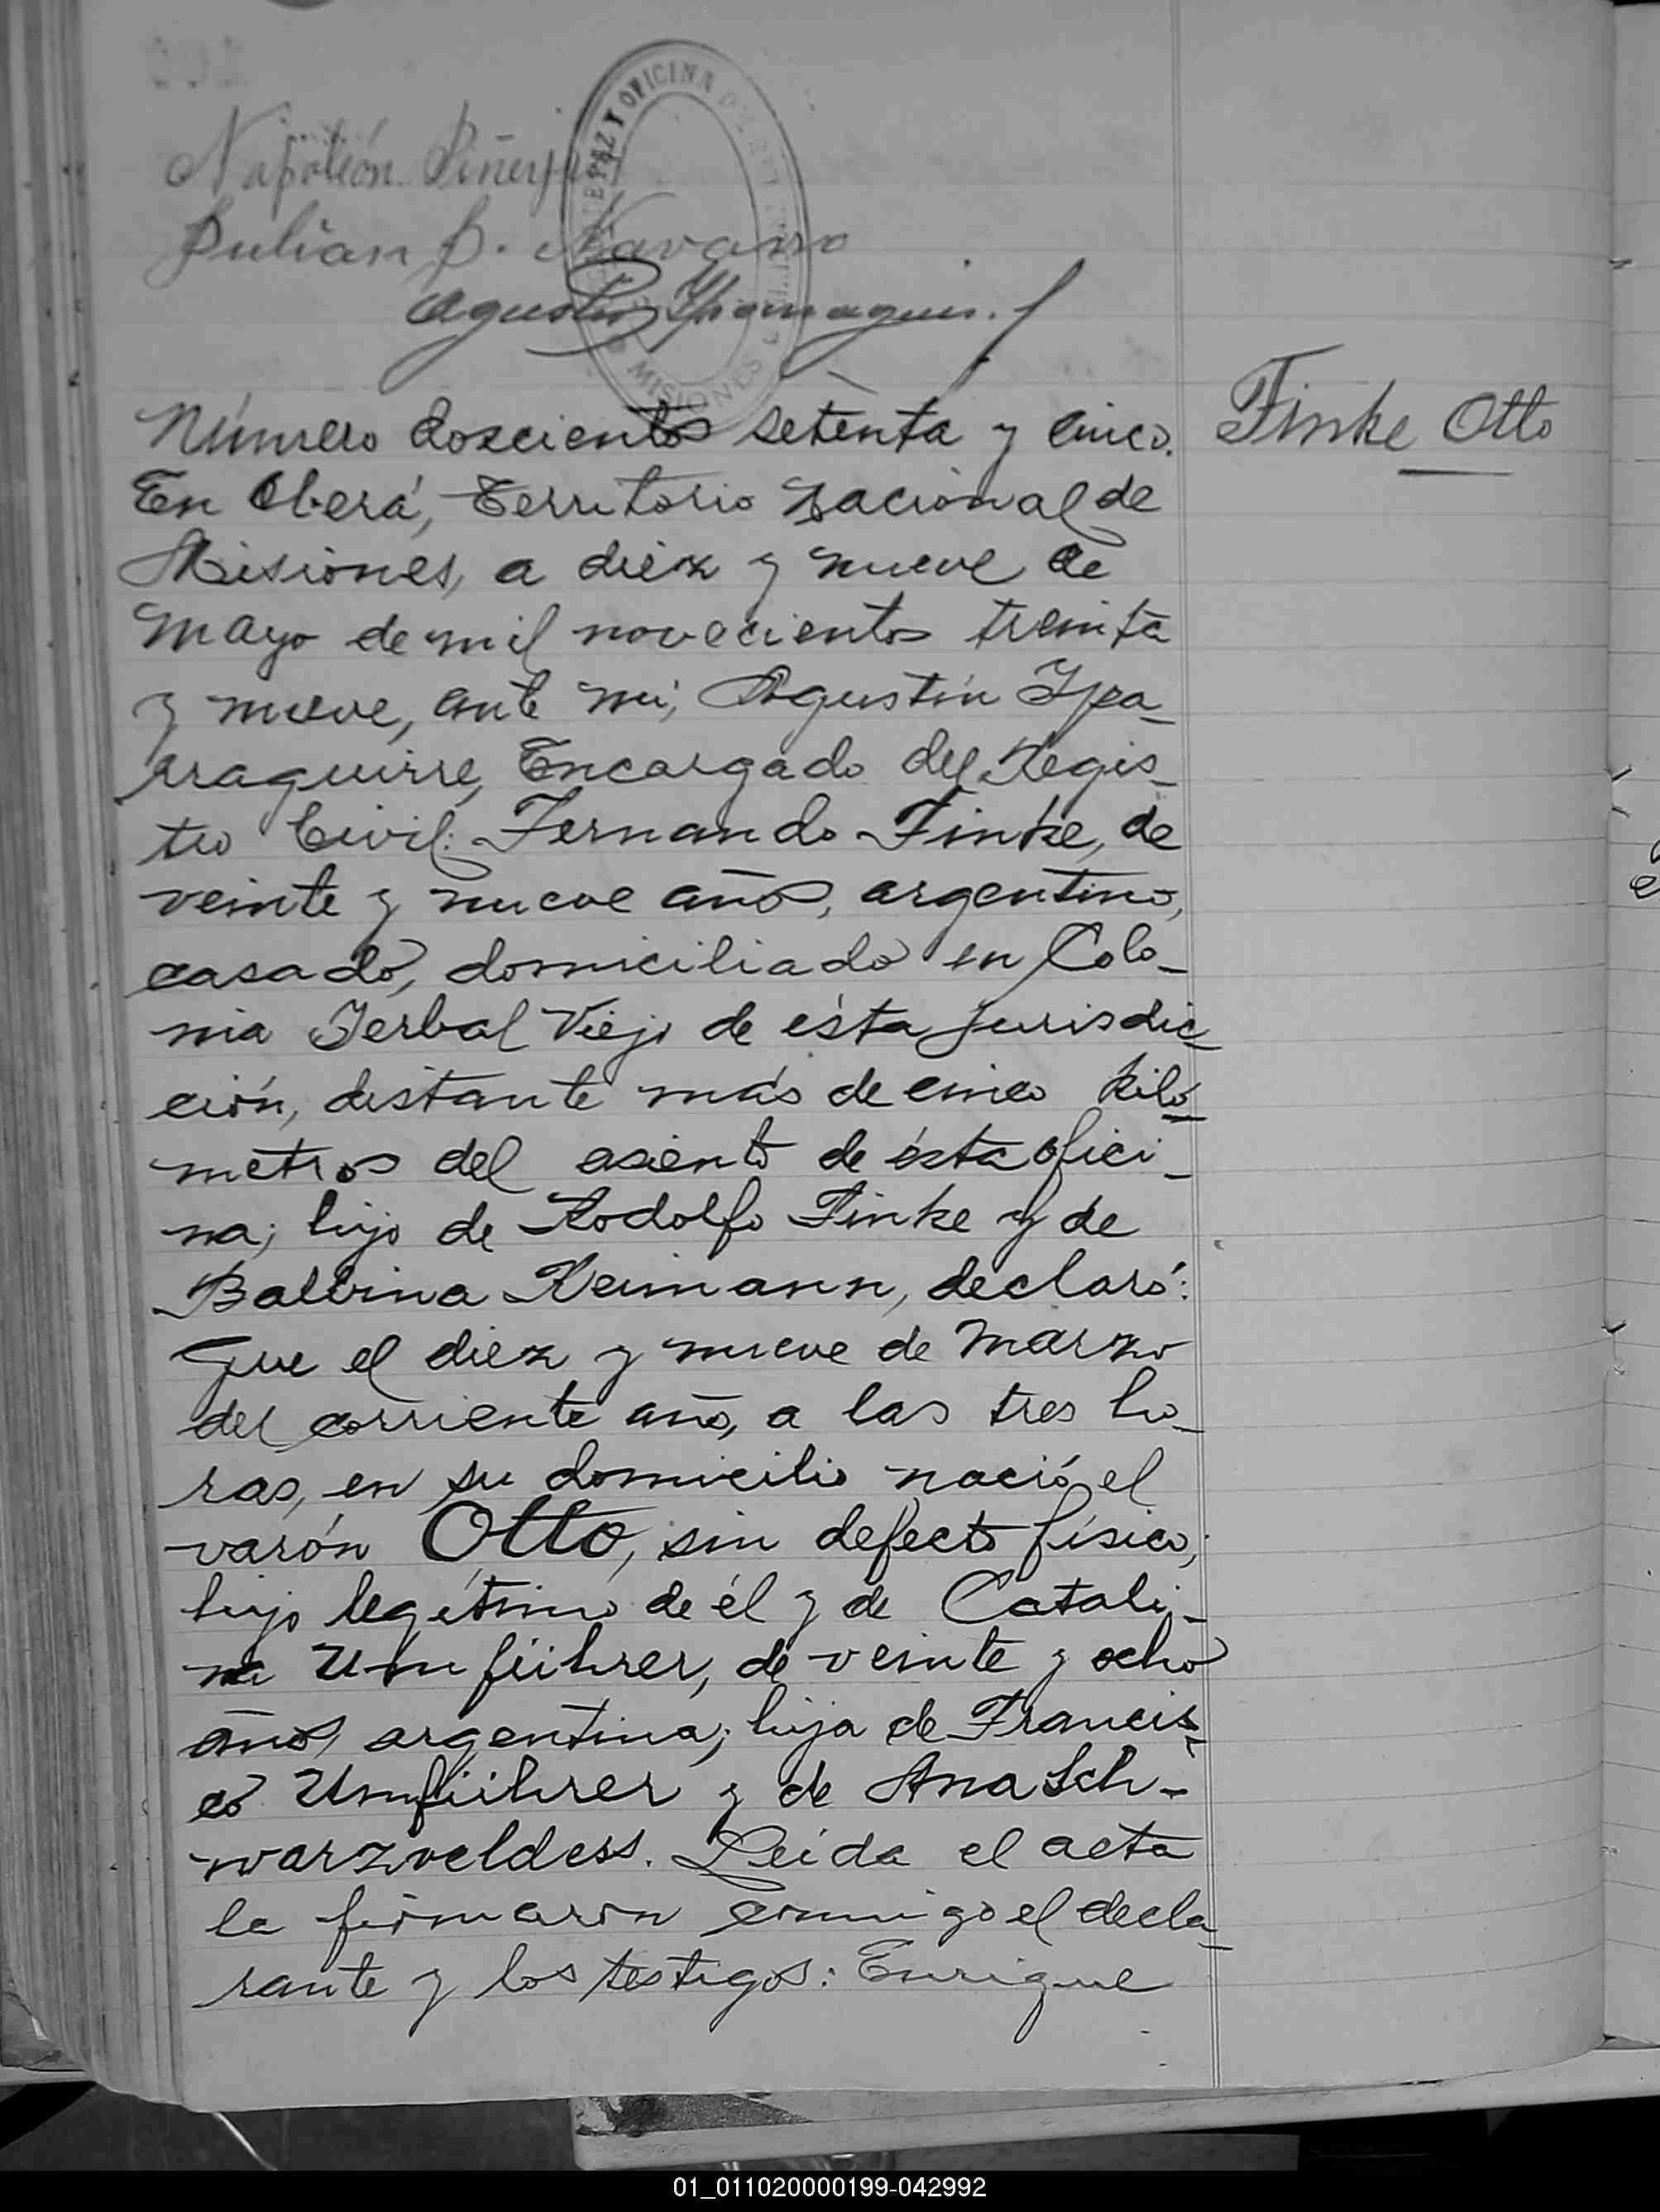 Napoleón
Julian B. Navarro
OFICINA
MISIONES
Número doscientos setenta y cinco.
Finke Otto
En Oberá, Territorio Nacional de
Misiones, a diez y nueve de
Mayo de mil novecientos treinta
y nueve, ante mi, Agustín Ypa-
rraguirre, Encargado del Regis-
tro Civil: Fernando Finke, de
veinte y nueve años, argentino,
casado, domiciliado en Colo-
nia Yerbal Viejo de ésta jurisdic-
ción, distante más de cinco kiló-
metros del asiento de ésta ofici-
na; hijo de Rodolfo Finke y de
Balbina Reimann, declaró:
Que el diez y nueve de Marzo
del corriente año, a las tres ho-
ras, en su domicilio nació el
varón Otto, sin defecto físico,
hijo legítimo de él y de Catali-
na Umführer, de veinte y ocho
años, argentina; hija de Francis-
co Umführer y de Ana Sch-
warzveldess. Leida el acta
la firmaron conmigo el decla-
rante y los testigos: Enrique
01_011020000199-042992